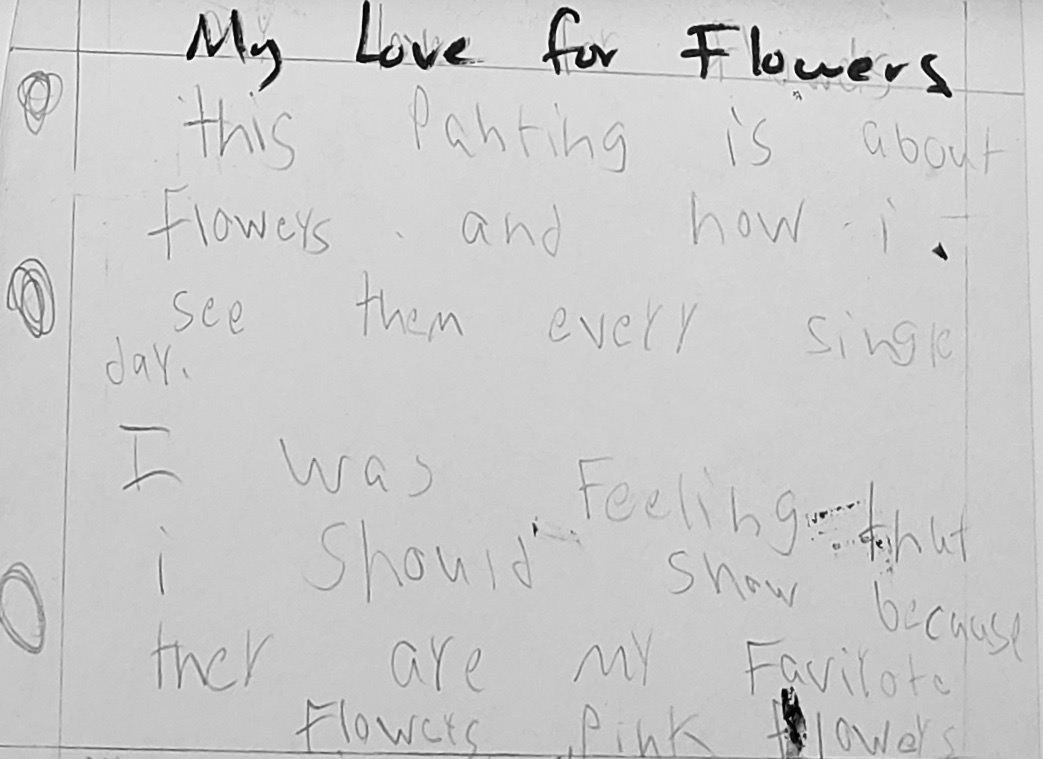 My Love for Flowers
this Panting is about
flowers and how i
see them every single
day.
I was Feeling that
i Should show because
ther are my Favirote
Flowers Pink flowers